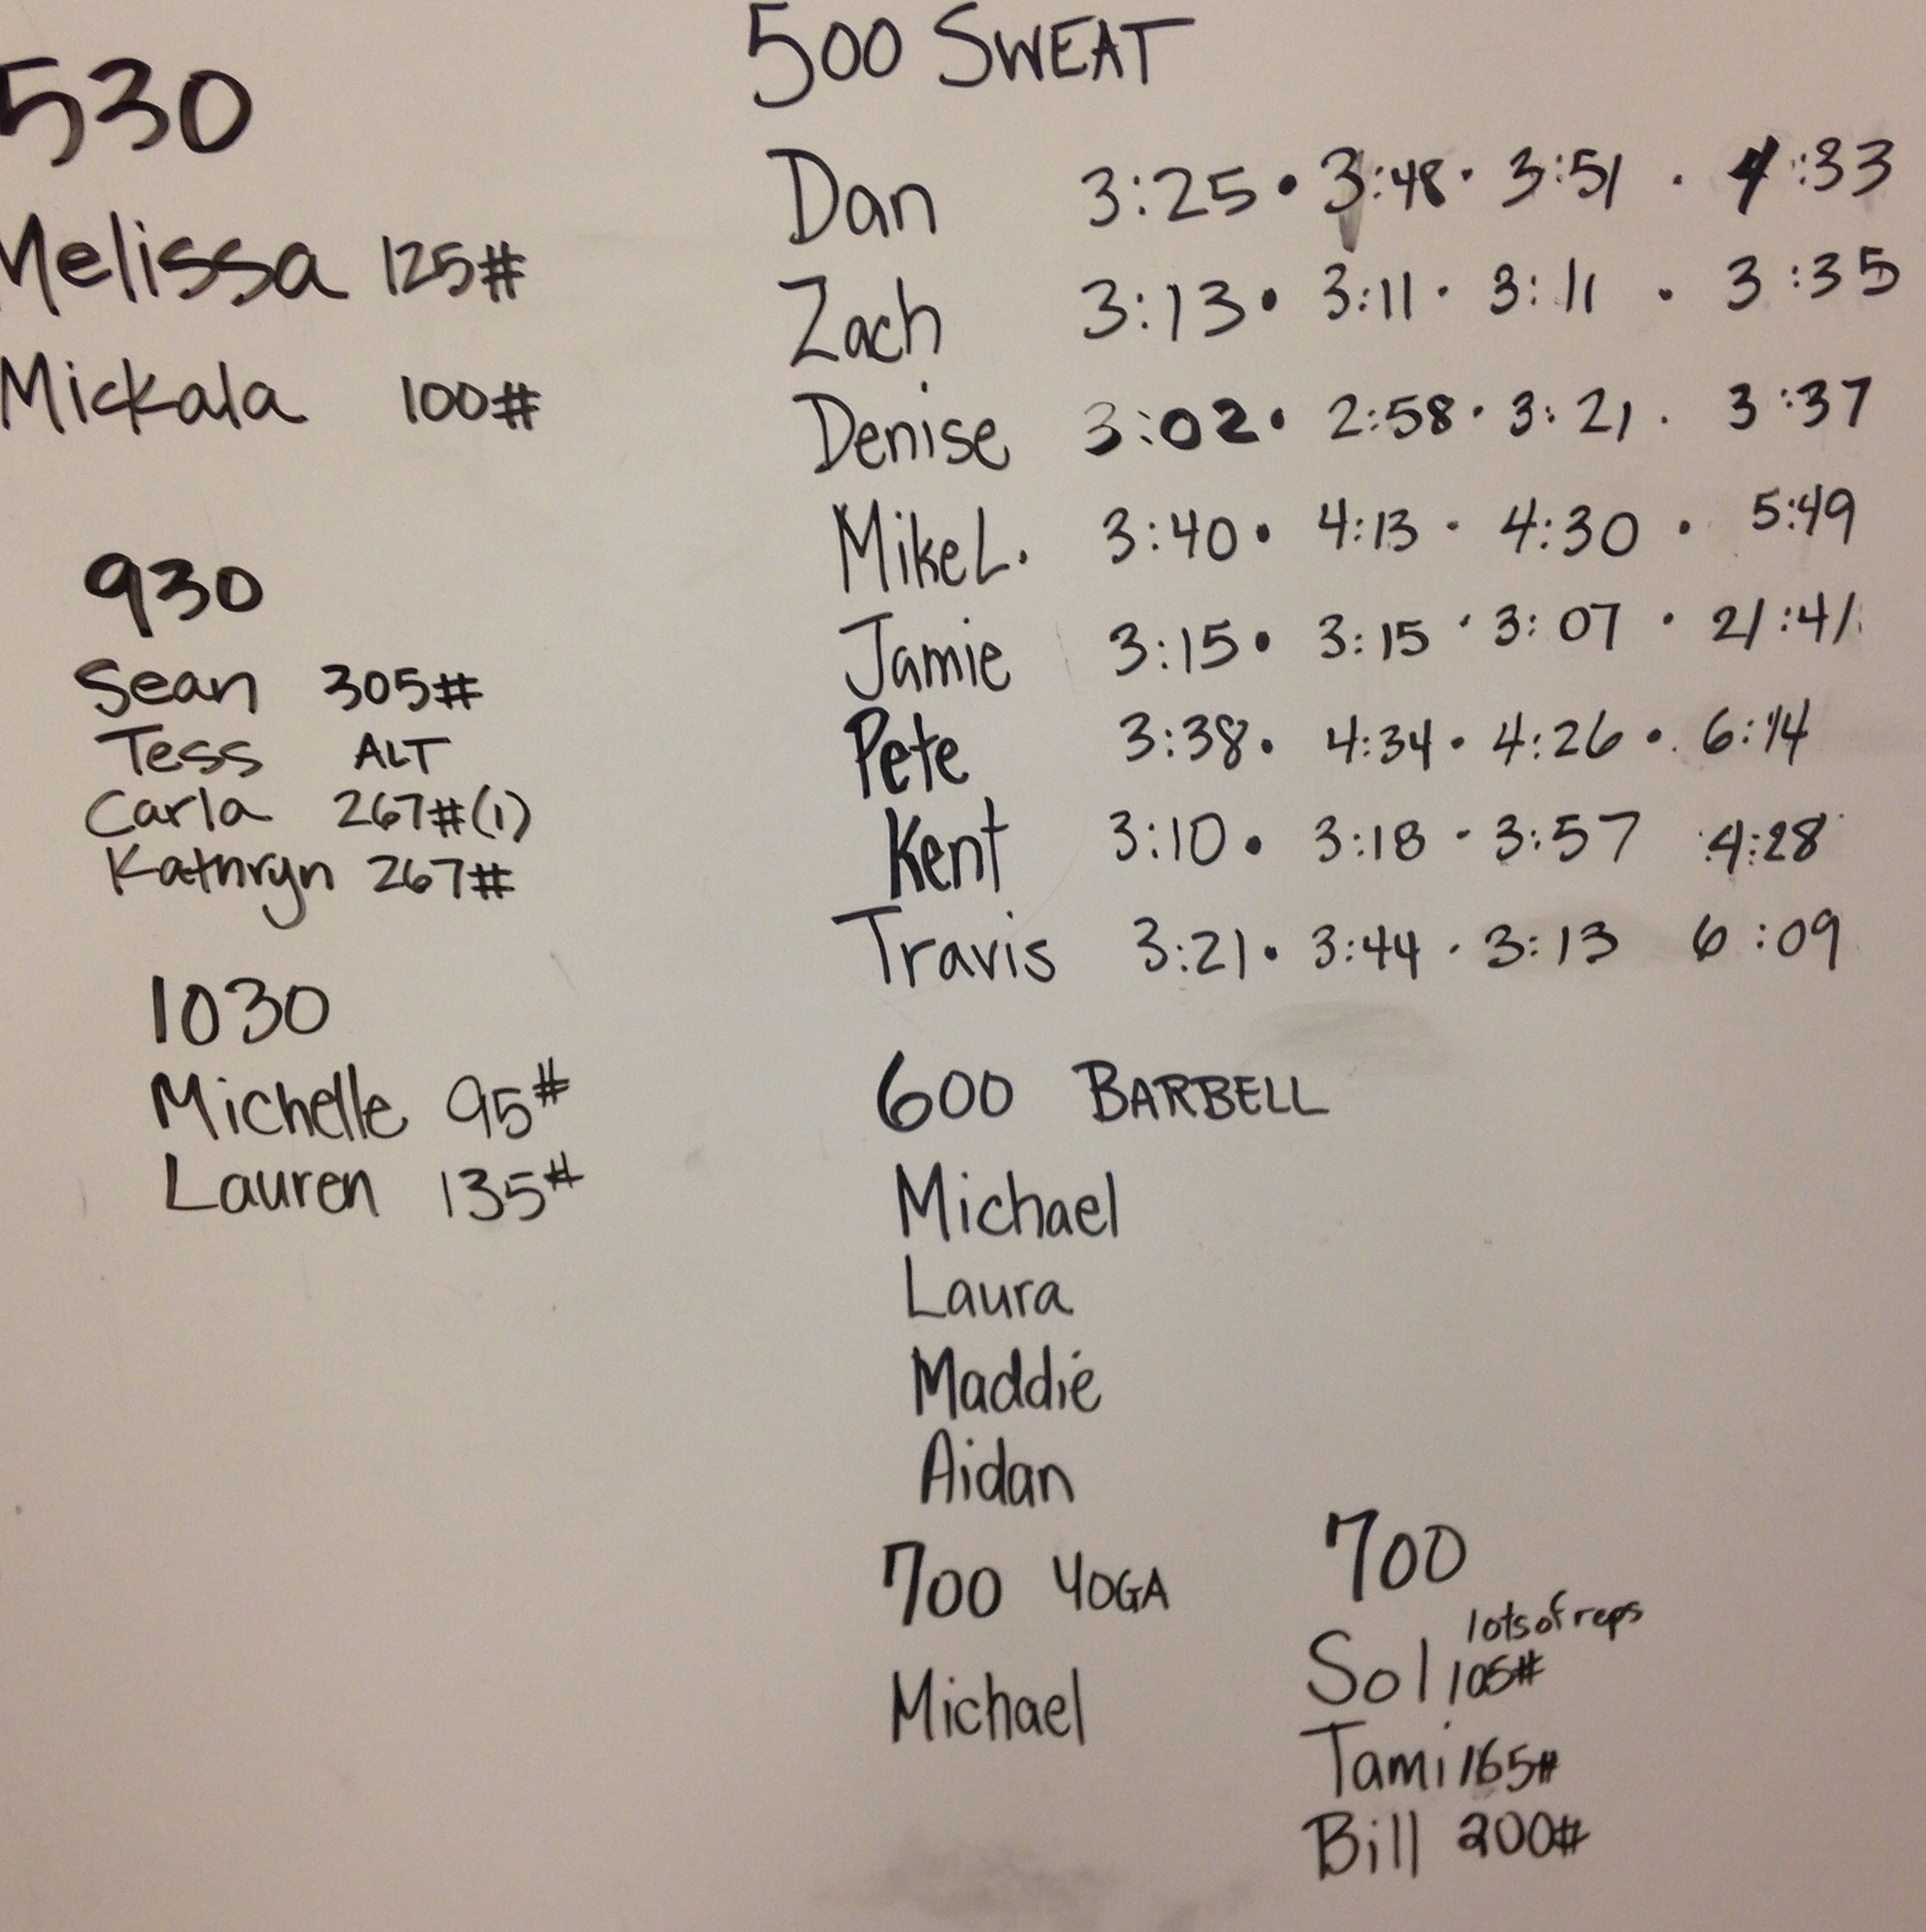 530
Melissa 125#
Mickala 100#
930
Sean 305#
Tess ALT
Carla 267#(1)
Kathryn 267#
1030
Michelle 95#
Lauren 135#
500 SWEAT
Dan 3:25 • 3:48 • 3:51 • 4:33
Zach 3:13 • 3:11 • 3:11 • 3:35
Denise 3:02 • 2:58 • 3:21 • 3:37
Mike L. 3:40 • 4:13 • 4:30 • 5:49
Jamie 3:15 • 3:15 • 3:07 • 21:41
Pete 3:38 • 4:34 • 4:26 • 6:14
Kent 3:10 • 3:18 • 3:57 4:28
Travis 3:21 • 3:44 • 3:13 6:09
600 BARBELL
Michael
Laura
Maddie
Aidan
700 YOGA
Michael
700
lots of reps
Sol 105#
Tami 165#
Bill 200#